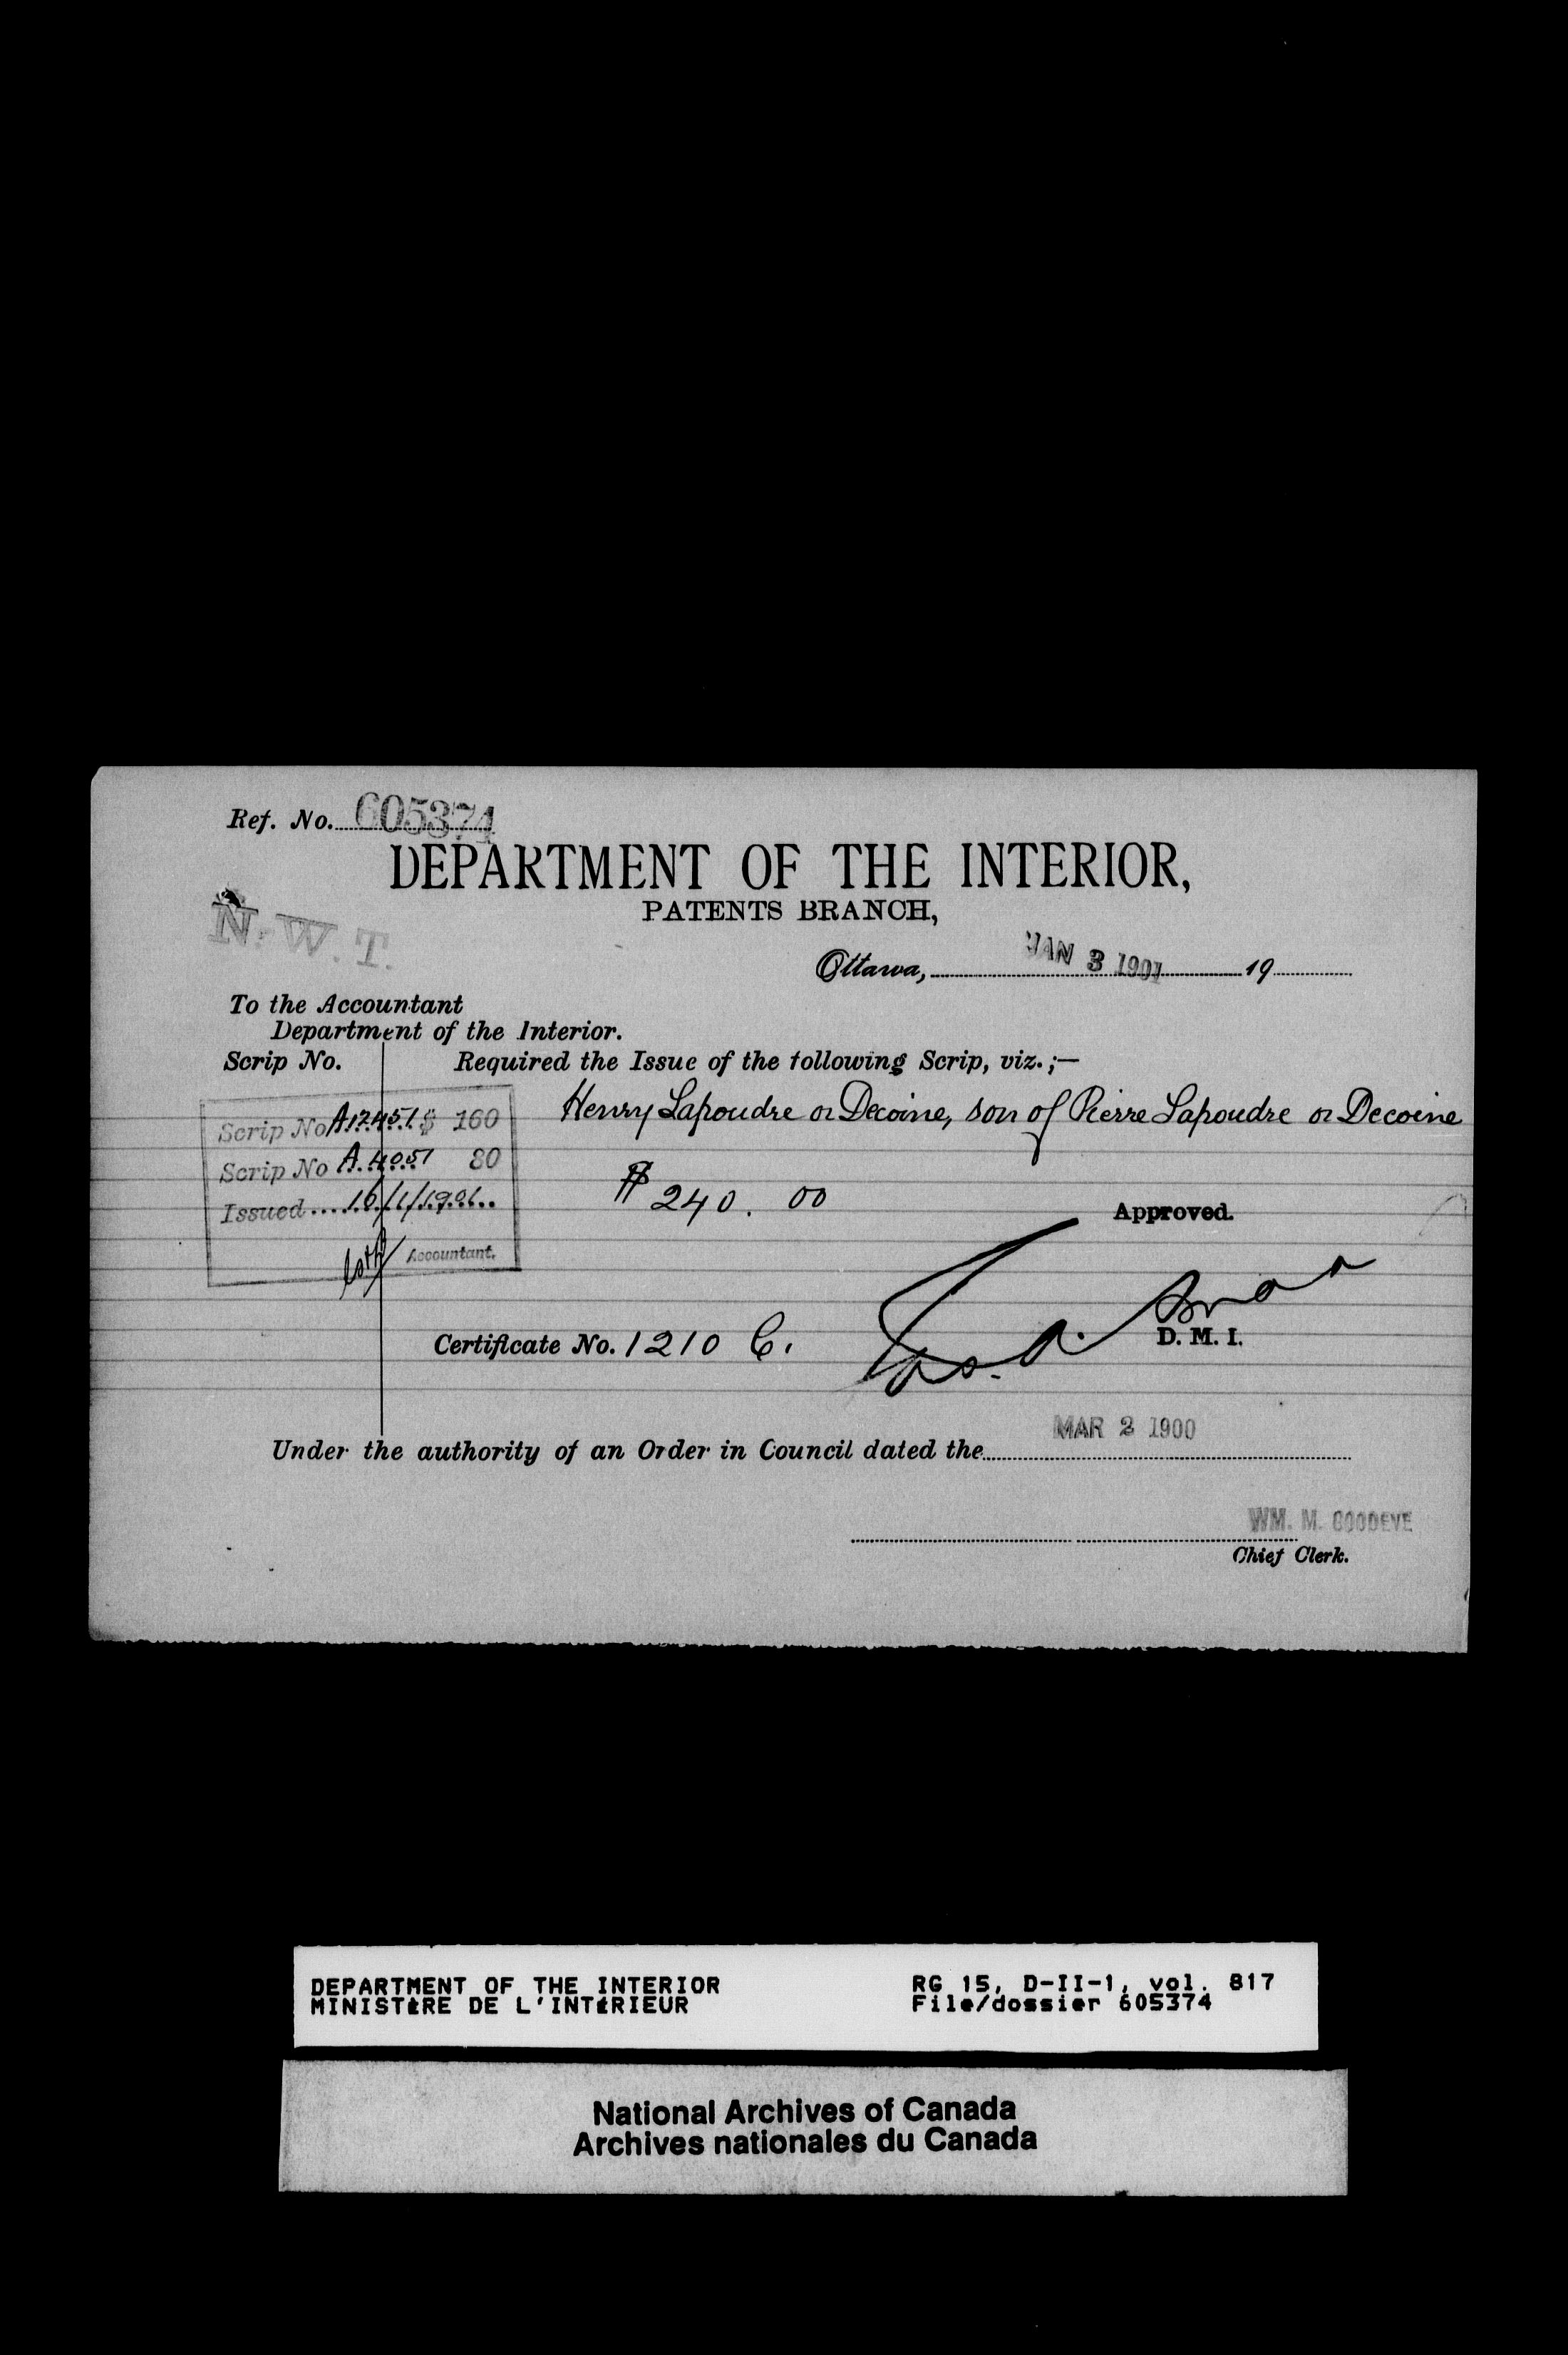 Ref. No. 605374
DEPARTMENT OF THE INTERIOR,
PATENTS BRANCH,
N. W. T.
Ottawa, JAN 3 1901 19
To the Accountant
Department of the Interior.
Scrip No. Required the Issue of the following Scrip, viz.;—
Scrip No A12451 $ 160 Henry Lapoudre or Decoine, son of Pierre Lapoudre or Decoine
Scrip No A.4051 80
Issued....16/1/1901.. $240.00
Approved.
Accountant.
D. M. I.
Certificate No. 1210 C.
MAR 2 1900
Under the authority of an Order in Council dated the
WM. M. GOODEVE
Chief Clerk.
DEPARTMENT OF THE INTERIOR RG 15, D-II-1, vol. 817
MINISTÈRE DE L'INTÉRIEUR File/dossier 605374
National Archives of Canada
Archives nationales du Canada